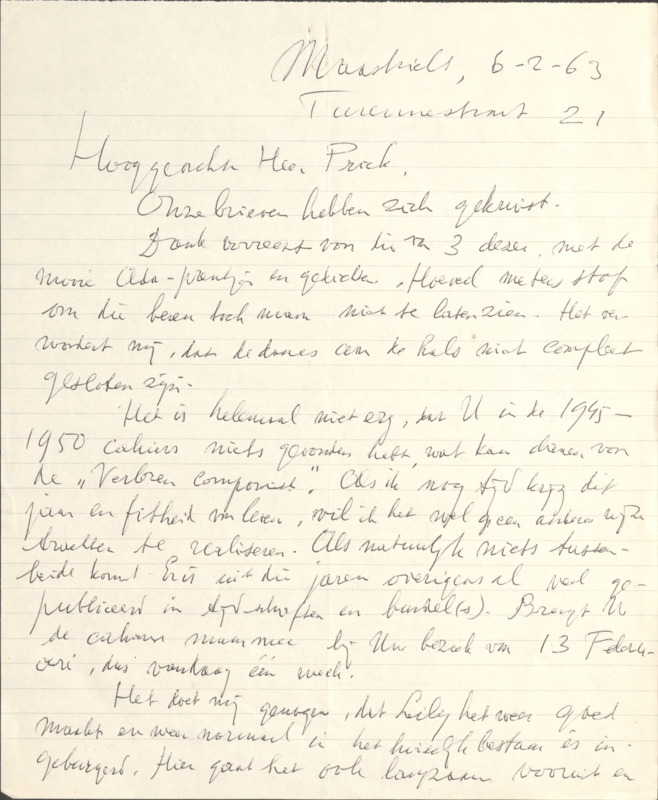 Maastricht, 6-2-63
Turennestraat 21
Hooggeachte Heer Prick,
Onze brieven hebben zich gekruist.
Dank vooreerst voor die van 3 dezer, met de
mooie en gedichten. Hoeveel meters stof
om die toch maar niet te laten zien. Het ver-
wondert mij, dat de dames aan de hals niet compleet
gesloten zijn.
Het is helemaal niet erg, dat U in de 1945-
1950 cahiers niets gevonden hebt, wat kan dienen voor
de "Verloren componist". Als ik nog tijd krijg dit
jaar en fitheid van leven, wil ik het wel op een andere wijze
trachten te realiseren. Als natuurlijk niets tussen-
beide komt. Er is uit die jaren overigens al veel ge-
publiceerd in tijdschriften en bundel(s). Brengt U
de cahiers maar mee bij Uw bezoek van 13 Febru-
ari, dus vandaag één week.
Het doet mij genoegen, dat Leily het weer goed
maakt en weer normaal in het huiselijk bestaan is in-
geburgerd. Hier gaat het ook langzaam vooruit en